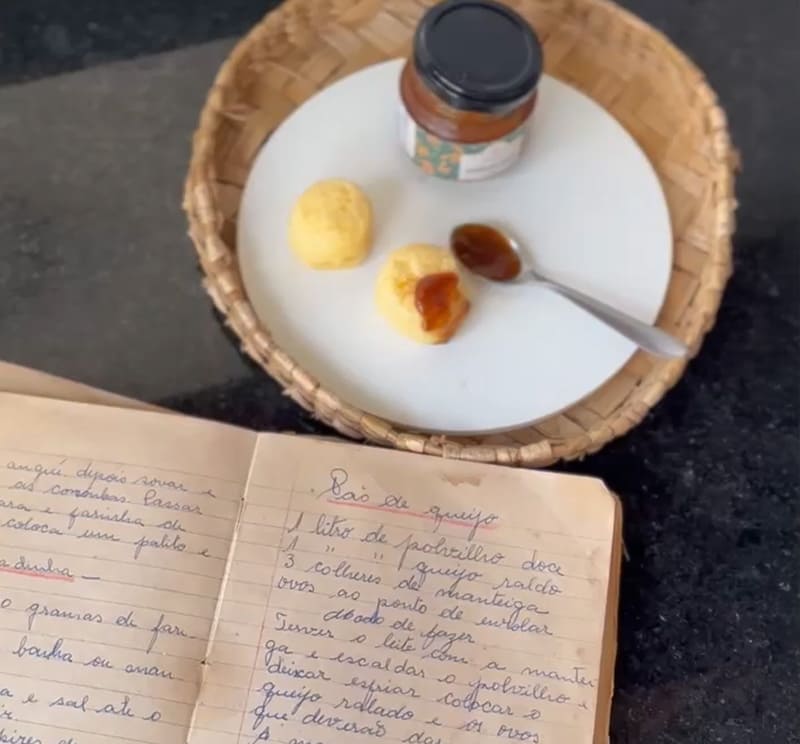 angú depois sovar e
as coxinhas. Passar
ara e farinha de
coloca um palito e
adinha
0 gramas de fari
banha ou man
a e sal até o
ir.
Pão de queijo
1 litro de polvilho doce
1 " " queijo raldo
3 colheres de manteiga
ovos ao ponto de enrolar
Modo de fazer
Ferver o leite com a mantei
ga e escaldar o polvilho e
deixar esfriar colocar o
queijo ralado e os ovos
que deverão das